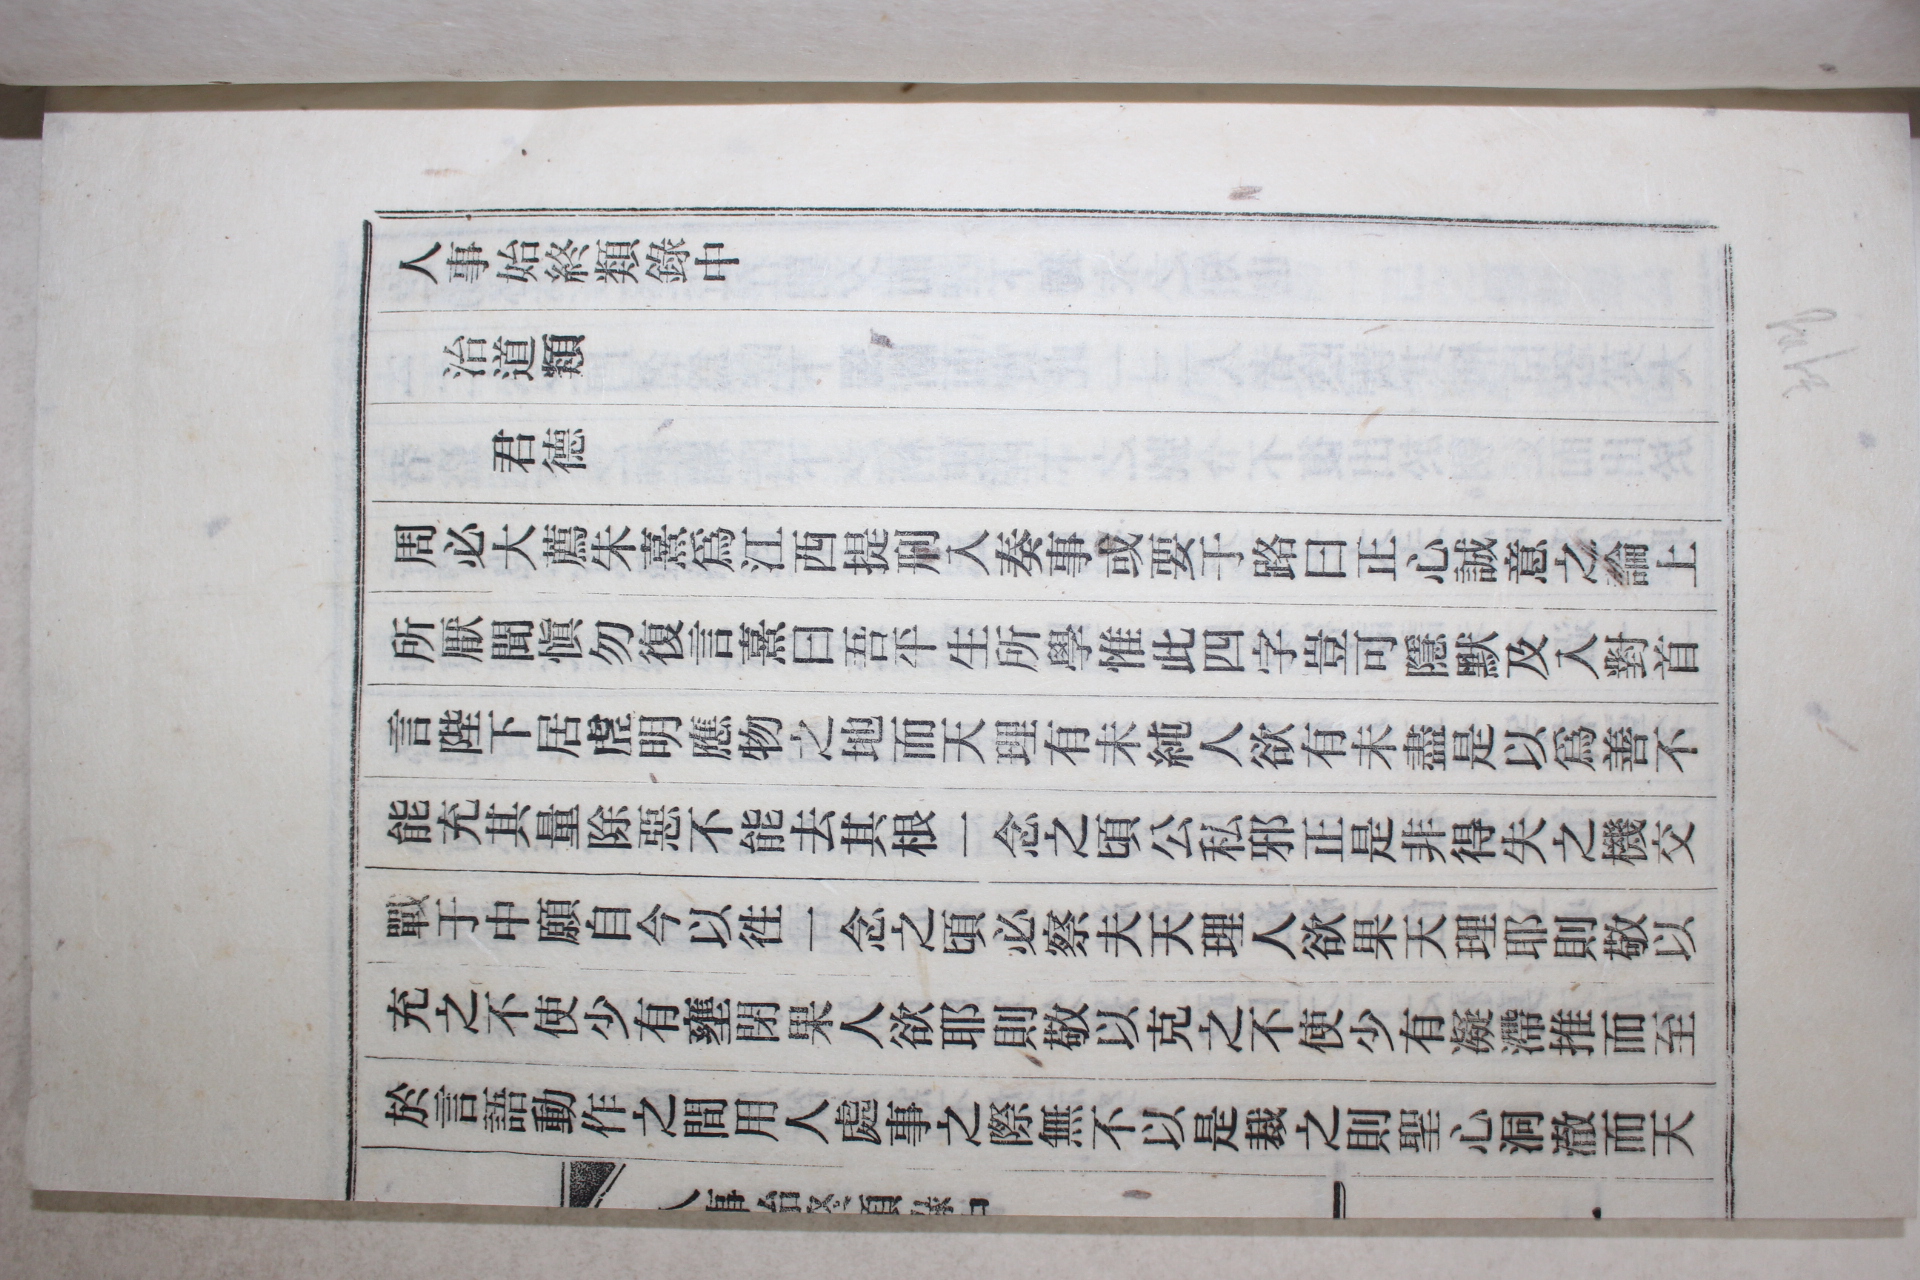 人事始終類錄中
治道類
君德
周必大薦朱熹爲江西提刑入奏事或要于路曰正心誠意之論上
所厭聞愼勿復言熹曰吾平生所學惟此四字豈可隱默及入對首
言陛下居虛明應物之地而天理有未純人欲有未盡是以爲善不
能充其量除惡不能去其根一念之頃公私邪正是非得失之機交
戰于中願自今以徃一念之頃必察夫天理人欲果天理耶則敬以
充之不使少有壅閉果人欲耶則敬以克之不使少有凝滯推而至
於言語動作之間用人處事之際無不以是裁之則聖心洞澈而天